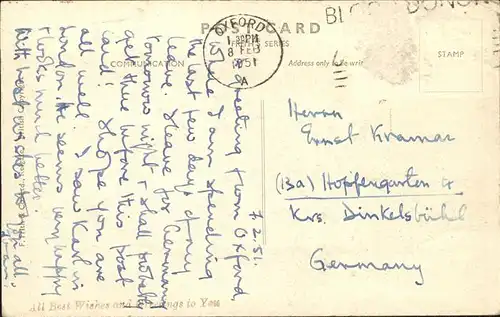 POST CARD
OXFORD
1 30 PM
8 FEB
1951
A
SERIES
BL
DONOR
COMMUNICATION
Address only to be writ
STAMP
7.2.51.
A greeting from Oxford,
where I am spending
the last few days of my
leave. I leave for Germany
tomorrow night & shall probably
get there before this post
card! I hope you are
all well. I saw Karl in
London. He seems very happy
& looks much better.
With best wishes to you all.
Herrn
Ernst Kramar
(13a) Hopfengarten 4
Krs. Dinkelsbühl
Germany
All Best Wishes and Greetings to You